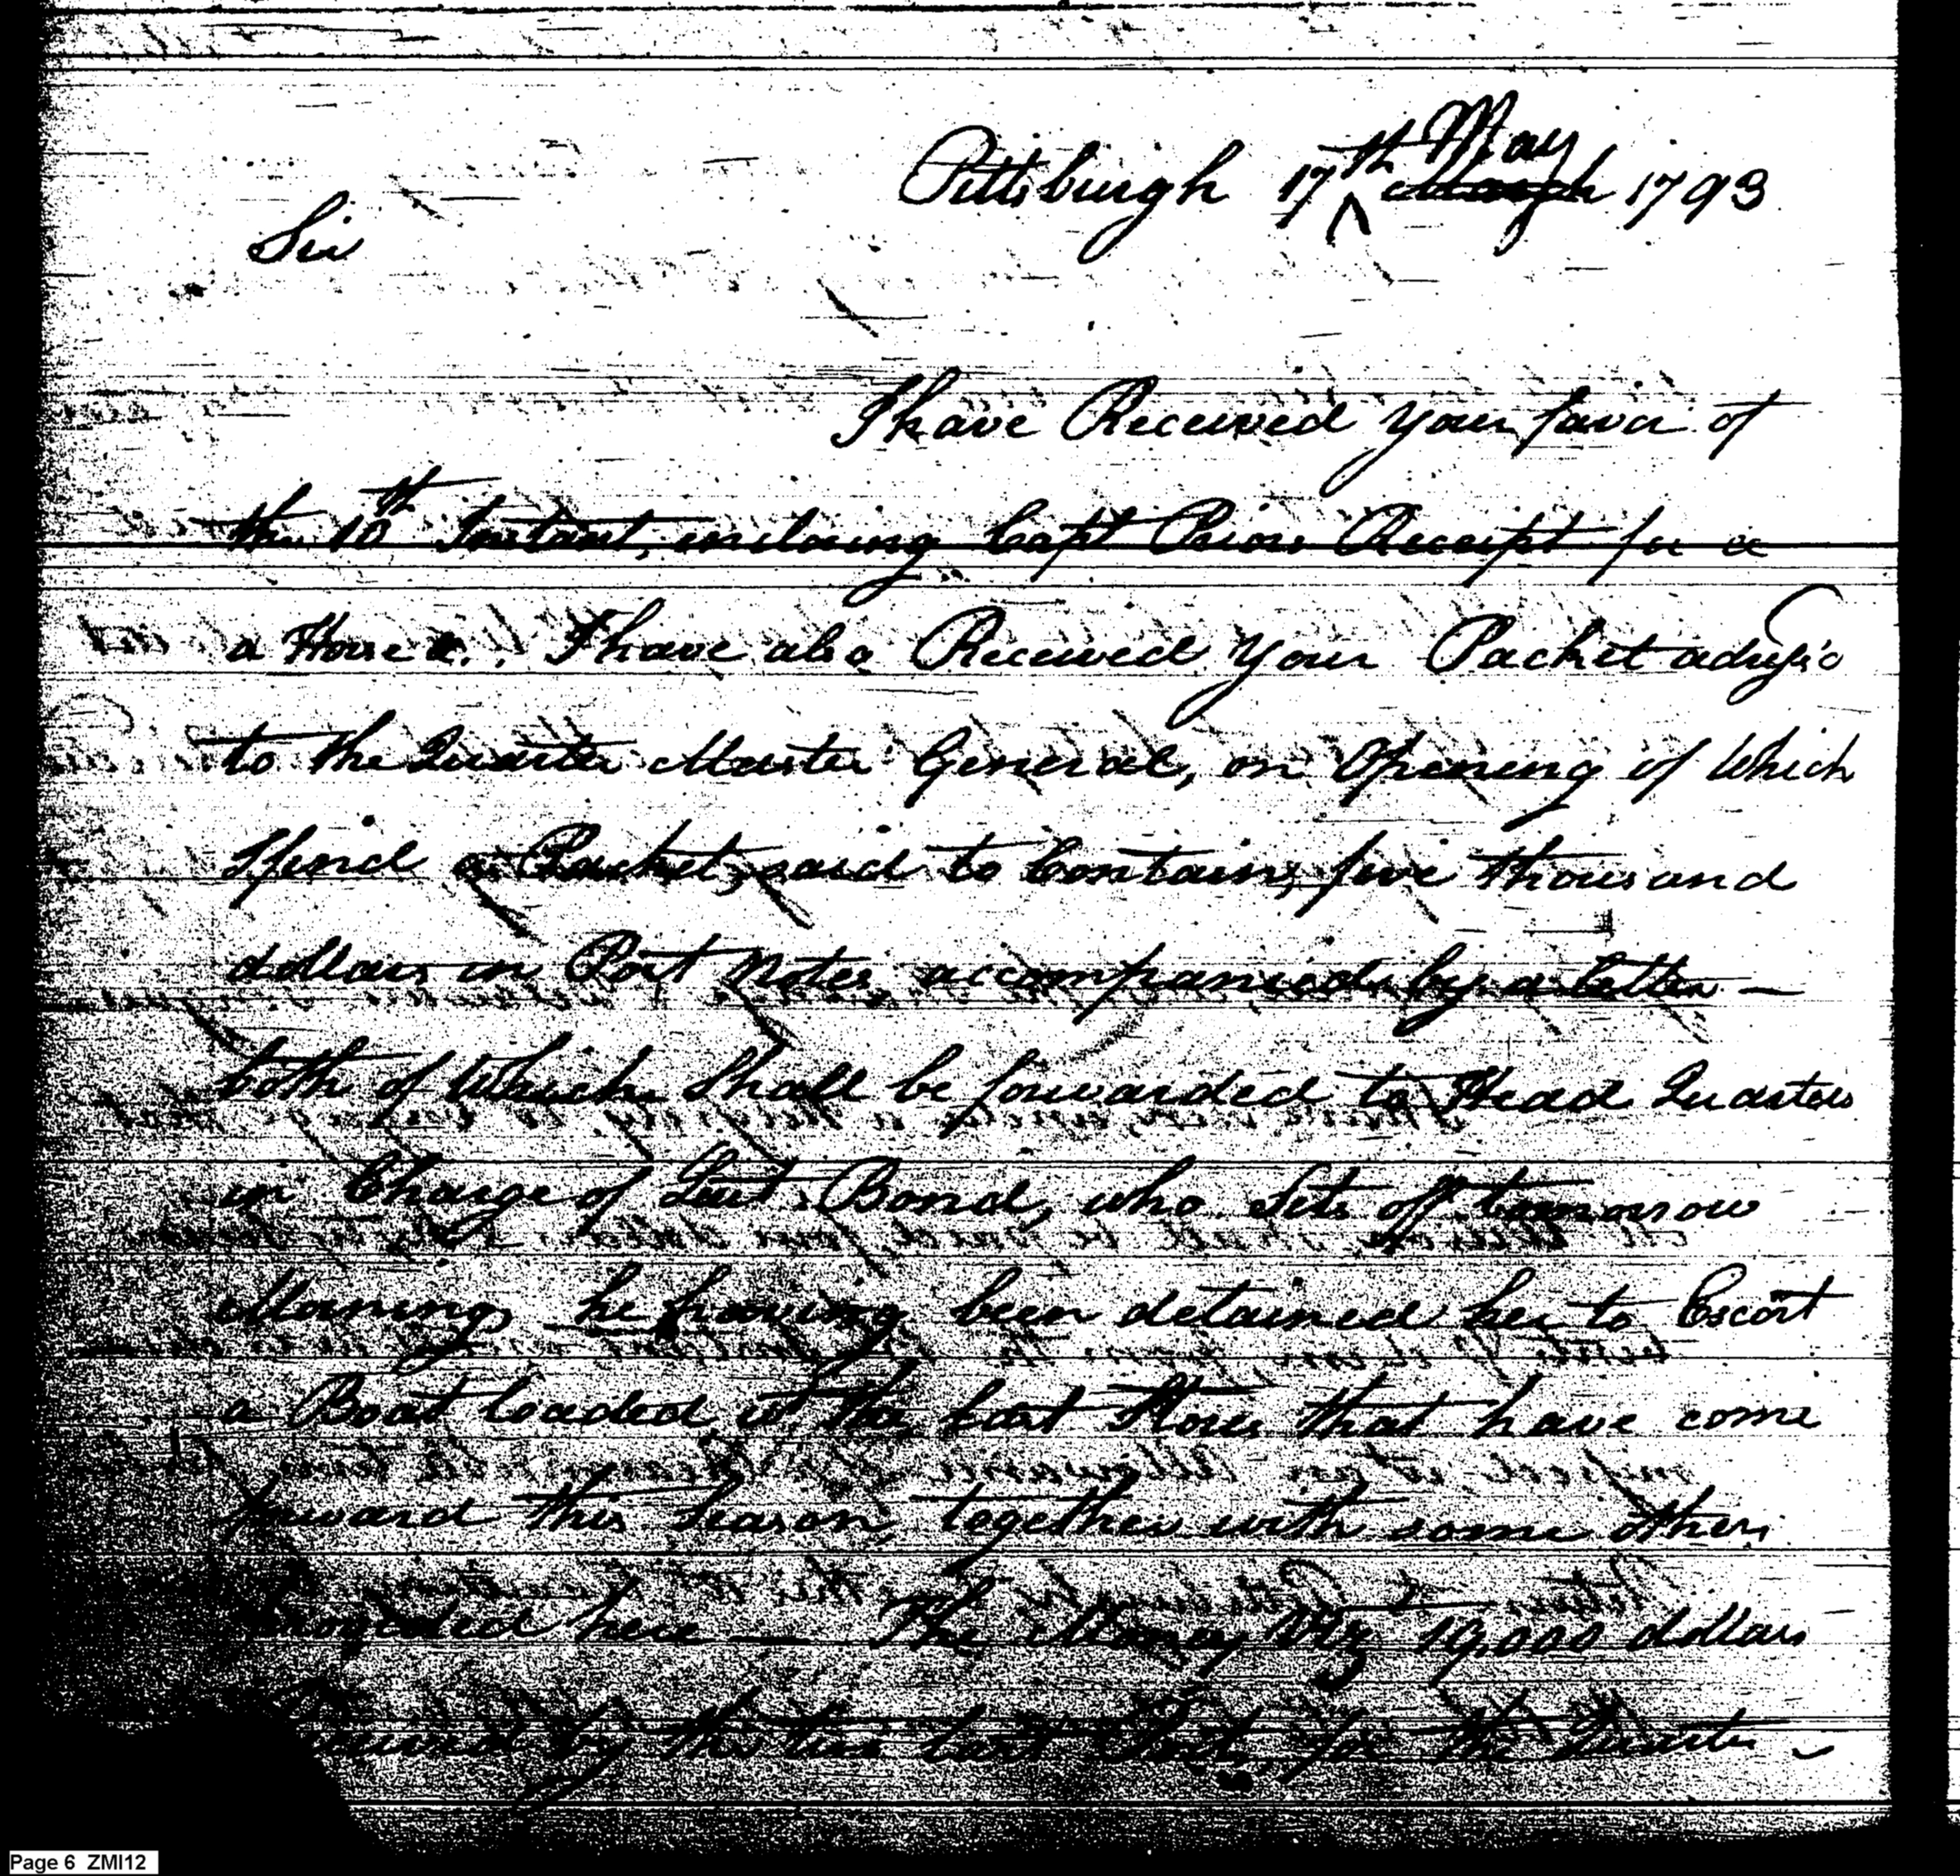 Pittsburgh 17th May March 1793
Sir
I have Received your favor of
the 10th Instant, inclosing Capt Priors Receipt for a
a Horse I have also Received your Packet
to the Quarter Master General, on Opening of Which
I find a Packet, said to Contain, five thousand
dollars in Post Notes, accompanied by a letter —
both of Which Shall be forwarded to Head Quarters
in Charge of Lieut. Bond, who Sets off tomorrow
Morning he having been detained her to Escort
a Boat loaded the last Stores that have come
forward this Season, together with some others
here — The Money Viz 19,000 dollars
by the two last Posts, for the Quarter
Page 6 ZMI12